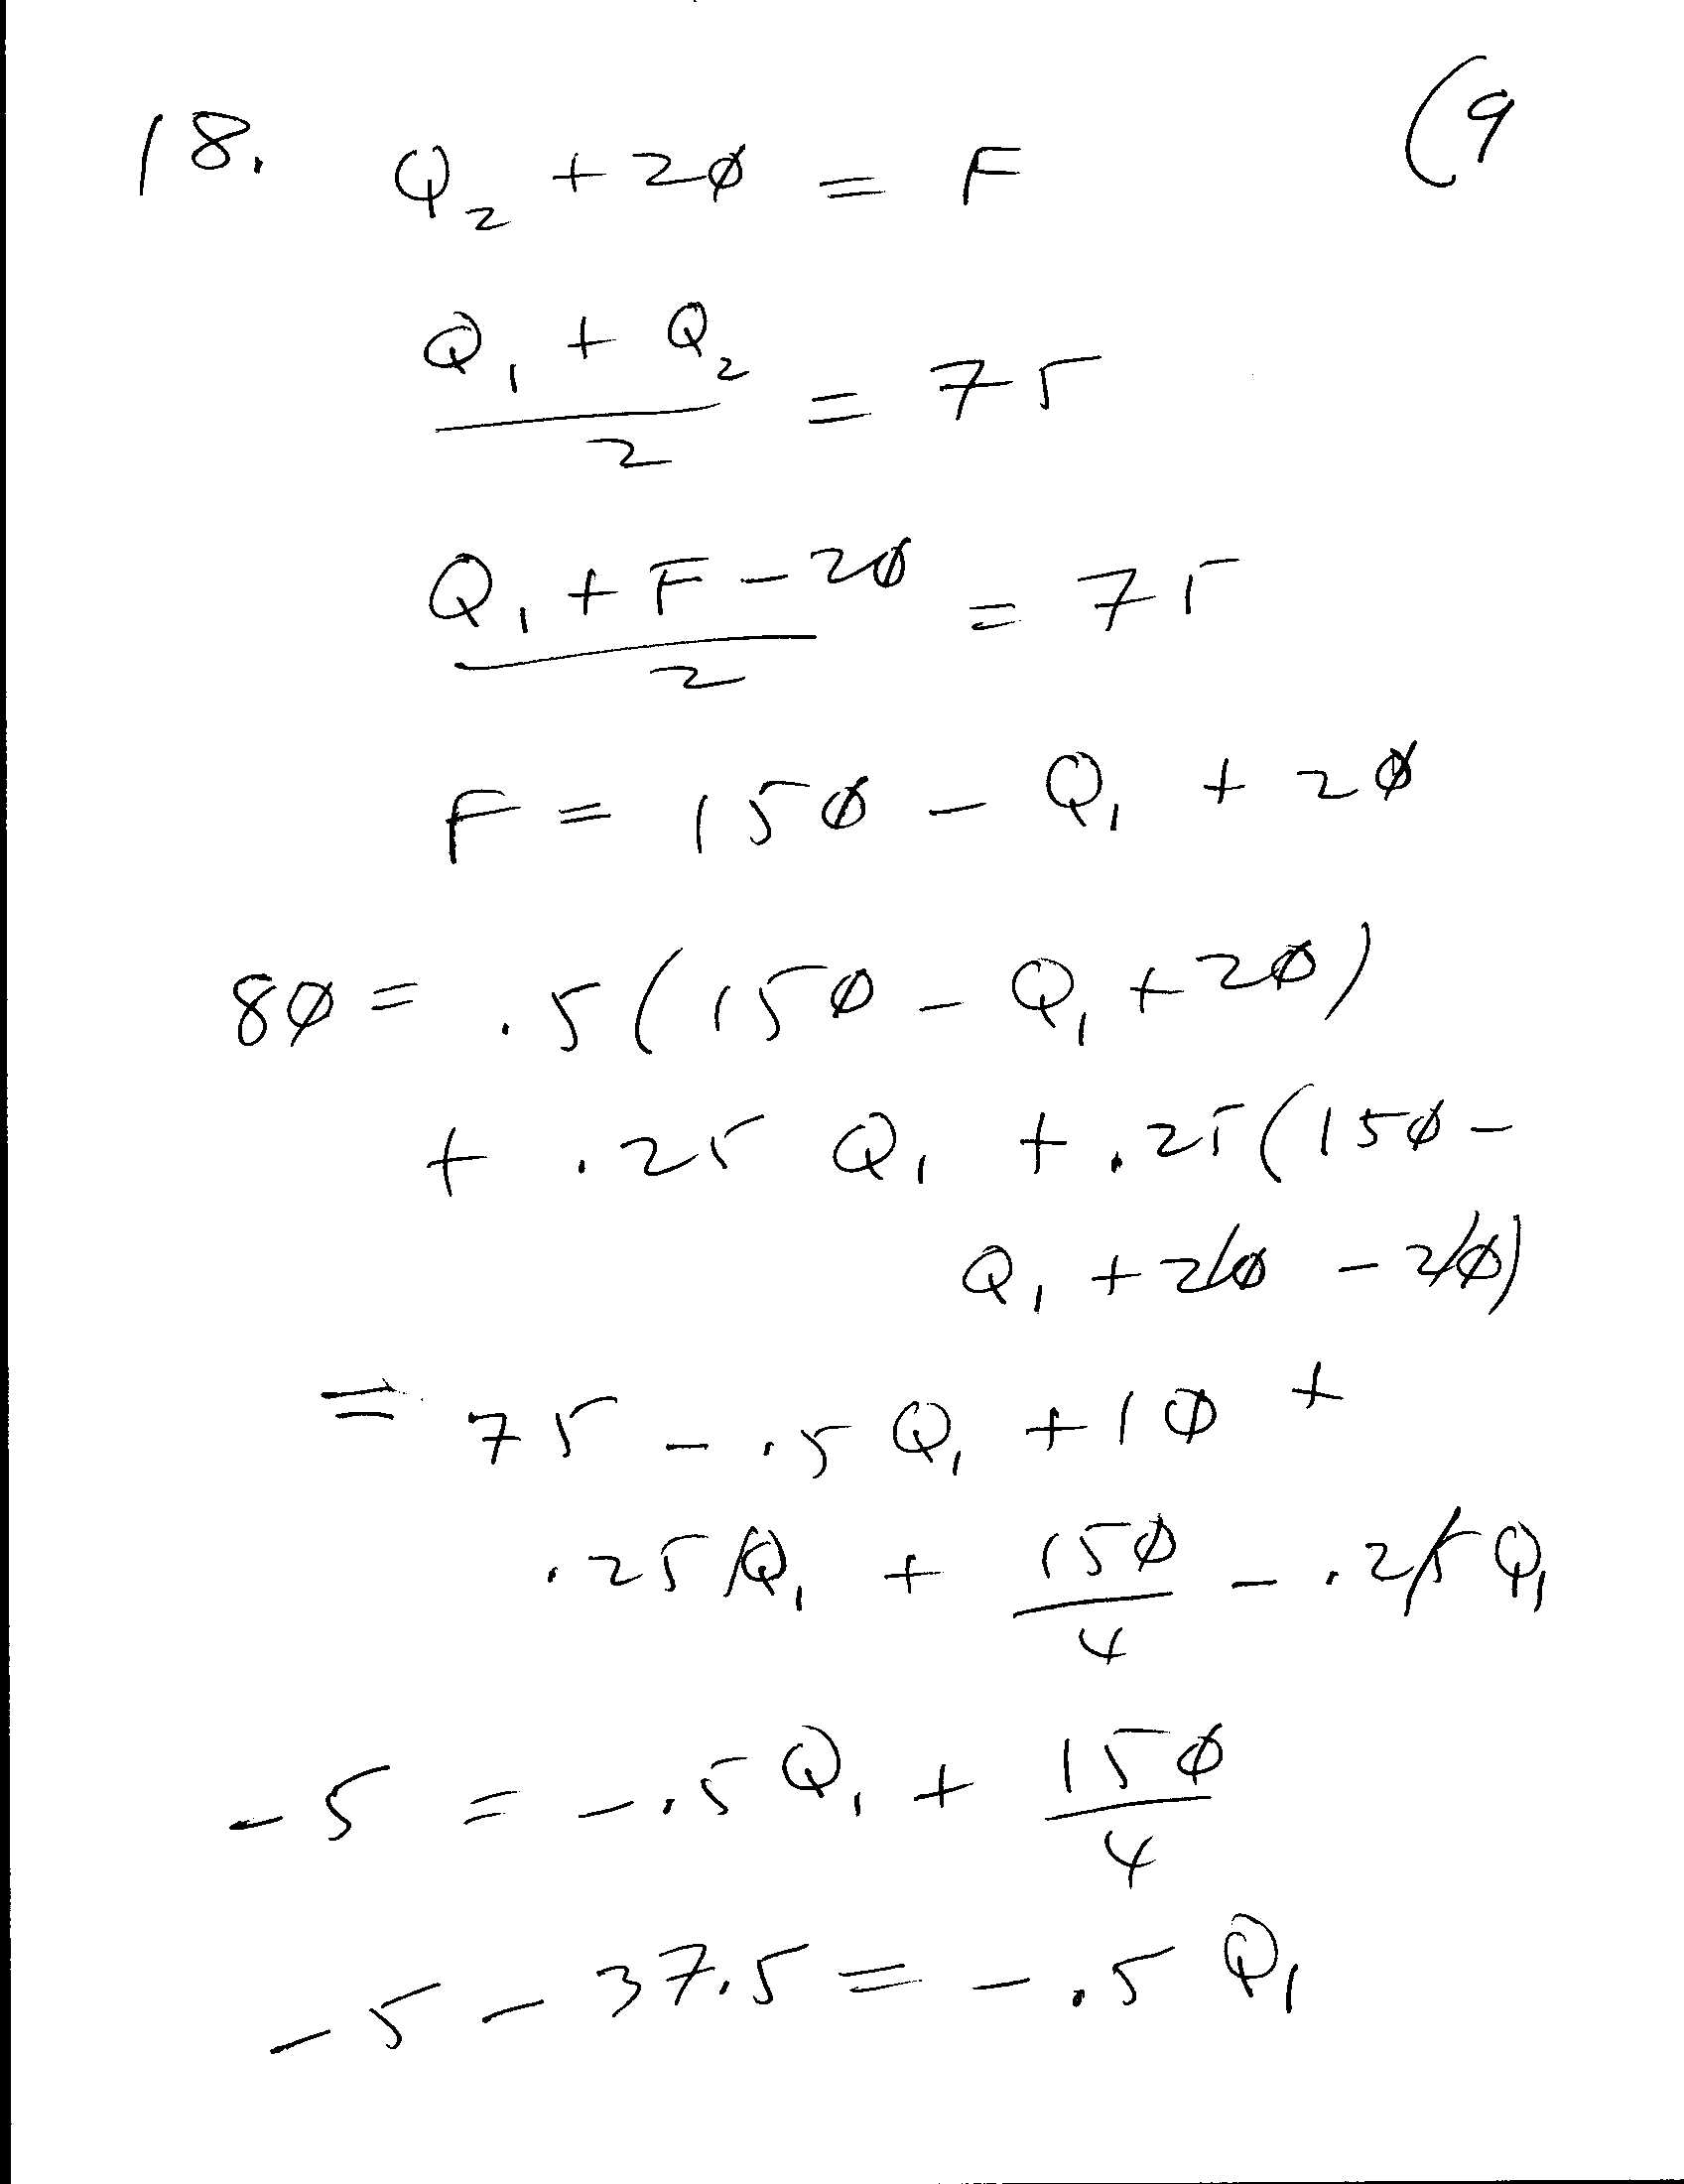 18. Q₂ + 20 = F (9
Q₁ + Q₂ / 2 = 75
Q₁ + F - 20 / 2 = 75
F = 150 - Q₁ + 20
80 = .5(150 - Q₁ + 20)
+ .25 Q₁ + .25(150 -
Q₁ + 20 - 20)
= 75 - .5 Q₁ + 10 +
.25 Q₁ + 150/4 - .25 Q₁
-5 = -.5 Q₁ + 150/4
-5 - 37.5 = -.5 Q₁